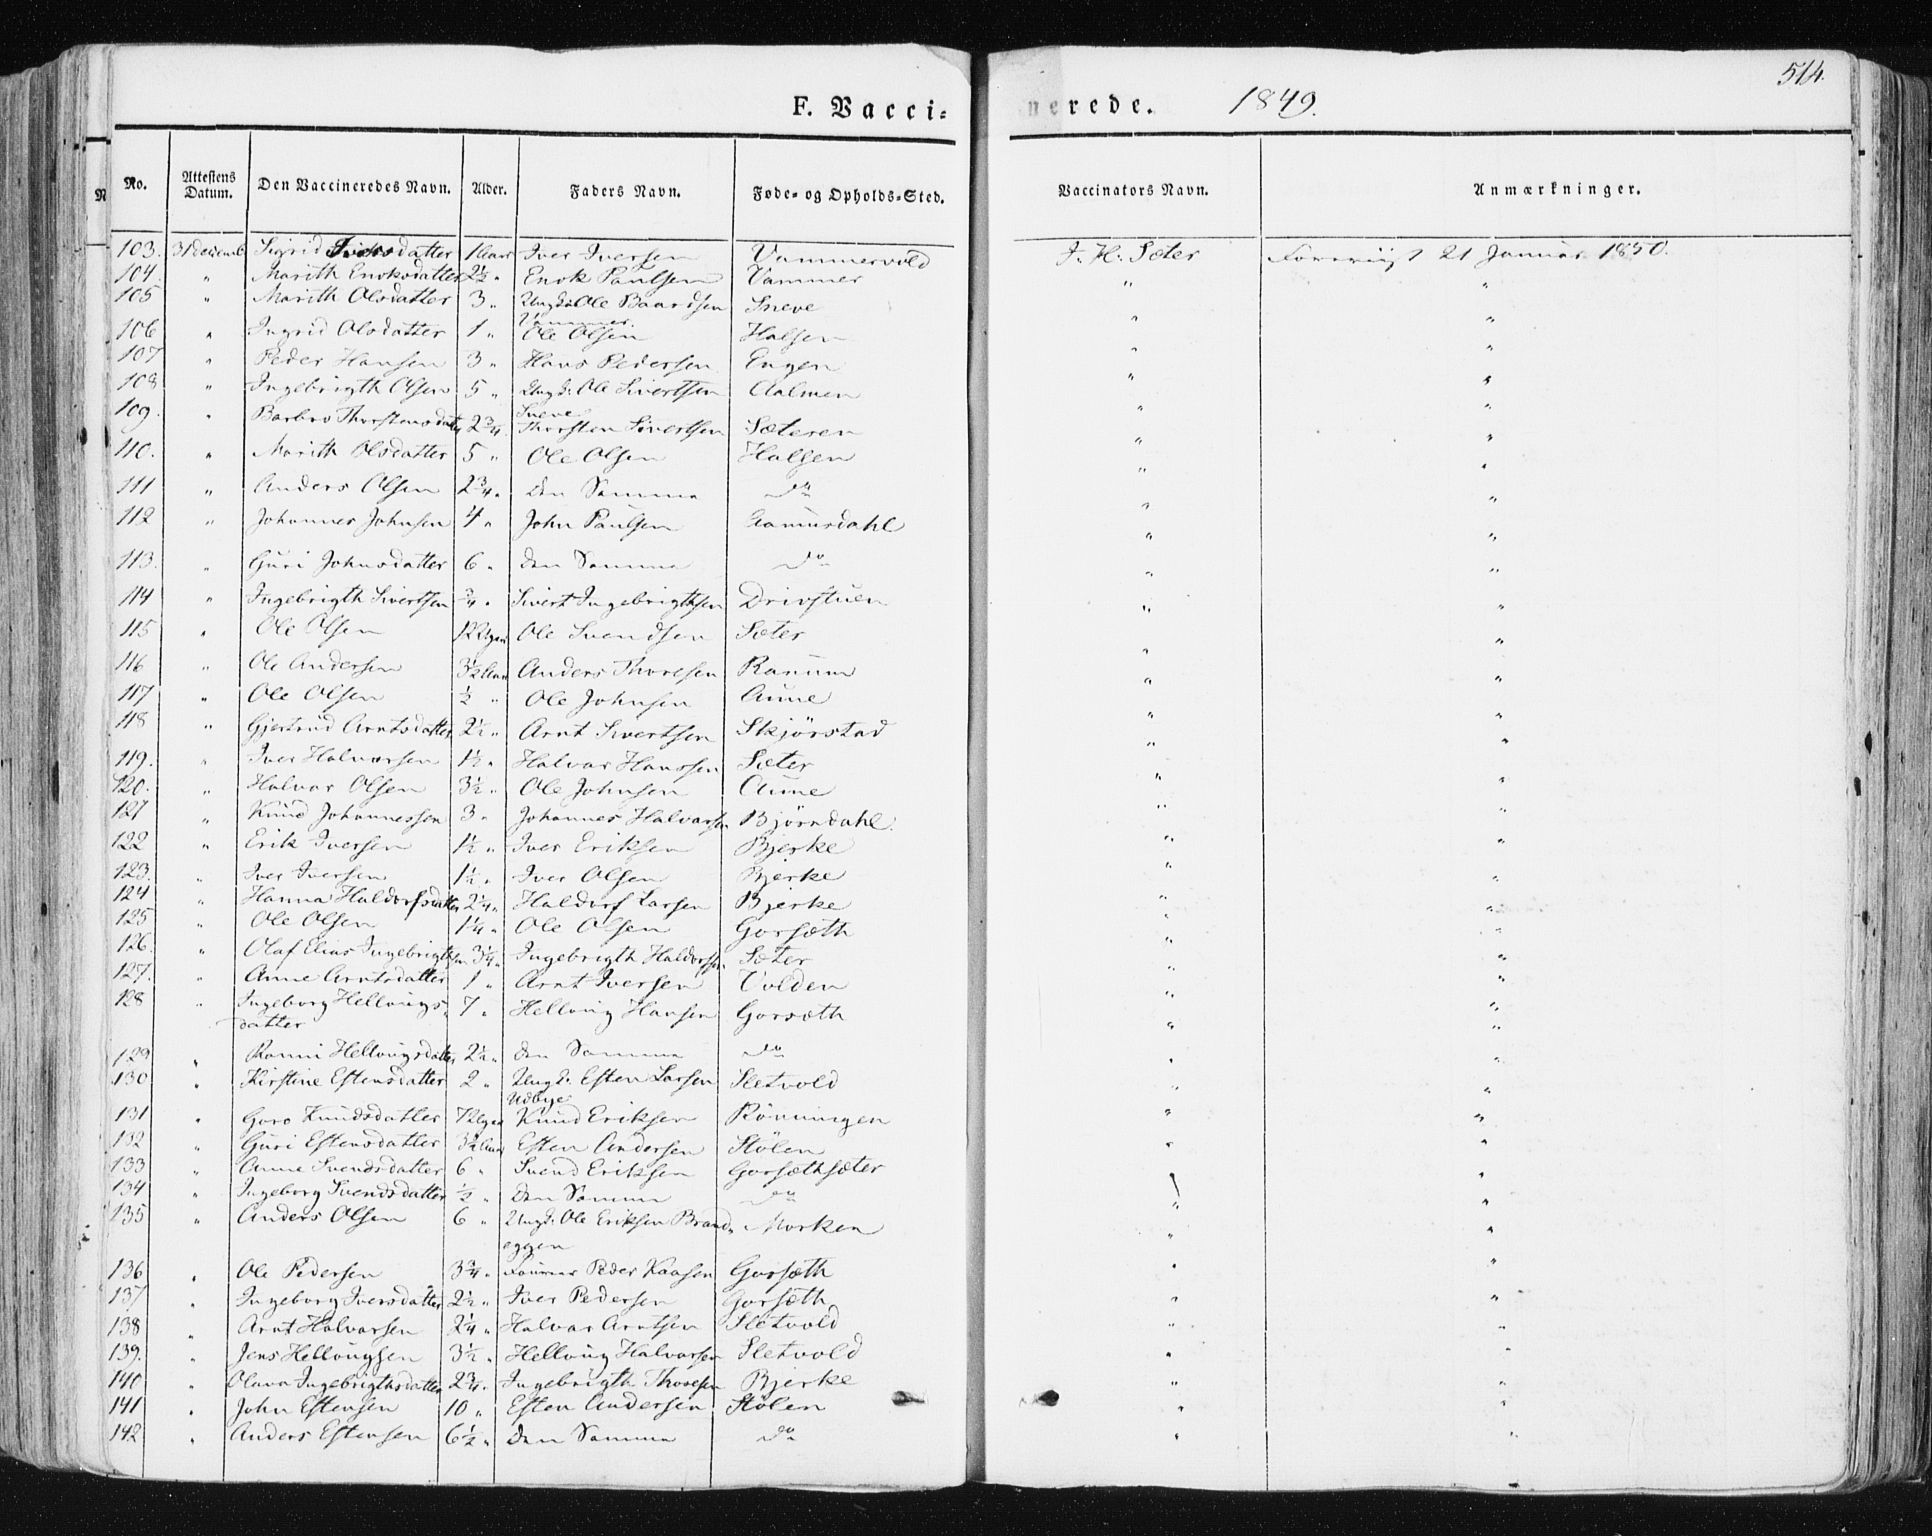 514.
F. Vaccinerede. 1849.
No. Attestens Datum. Den Vaccineredes Navn. Alder. Faders Navn. Føde- og Opholds-Sted. Vaccinators Navn. Anmærkninger.
103. 31 Decemb. Sigrid Iversdatter 1 Aar Iver Iversen Vammervold J. H. Sæter 21 Januar 1850.
104. " Marith Enoksdatter 2½ " Enok Paulsen Vammer " "
105 " Marith Olsdatter 3 " Ungk. Ole Baardsen Sneve " "
Vammer.
106 " Ingrid Olsdatter 1 " Ole Olsen Halsen " "
107 " Peder Hansen 3 " Hans Pedersen Engen " "
108 " Ingebrigth Olsen 5 " Ungk. Ole Sivertsen Aalmen " "
Sneve
109. " Barbro Thorstensdatter 2¾ Thorsten Sivertsen Sæteren " "
110. " Marith Olsdatter 5 " Ole Olsen Halsen " "
111 " Anders Olsen 2¾ " Den Samme do " "
112 " Johannes Johnsen 4 " John Paulsen " "
113. " Guri Johnsdatter 6 " Den Samme do " "
114 " Ingebrigth Sivertsen ¾ " Sivert Ingebrigthsen Drivstuen " "
115 " Ole Olsen 12 Uger Ole Svendsen Sæter " "
116 " Ole Andersen 3½ Aar Anders Thoresen Ranum " "
117 " Ole Olsen ½ " Ole Johnsen Aune " "
118 " Gjertrud Arntsdatter 2½ " Arnt Sivertsen Skjörstad " "
119. " Iver Halvorsen 1½ " Halvor Hanssen Sæter " "
120. " Halvor Olsen 3½ " Ole Johnsen Aune " "
121 " Knud Johannessen 3 " Johannes Halvorsen Björndahl. " "
122 " Erik Iversen 1½ " Iver Eriksen Bjerke " "
123. " Iver Iversen 1½ " Iver Olsen Bjerke " "
124 " Hanna Haldorfsdatter 2¼ " Haldorf Larsen Bjerke " "
125 " Ole Olsen 1¼ " Ole Olsen Gorsæth " "
126. " Olaf Elias Ingebrigthsen 3¼ " Ingebrigth Haldorsen Sæter " "
127. " Anne Arntsdatter 1 " Arnt Iversen Volden " "
128 " Ingeborg Hellvigs- 7 " Hellvig Hansen Gorsæth " "
datter
129 " Ranni Hellvigsdatter 2½ " Den Samme do " "
130 " Kirstine Estensdatter 2 " Ungk. Esten Larsen Sletvold " "
Udbye
131 " Goro Knudsdatter 7 Uger Knud Eriksen Rönningen " "
132 " Guri Estensdatter 3½ Aar Esten Andersen Stölen " "
133 " Anne Svendsdatter 6 " Svend Eriksen Gorsæthsæter " "
134 " Ingeborg Svendsdatter ½ " Den Samme do " "
135 " Anders Olsen 6 " Ungk. Ole Eriksen Brand- Morken " "
eggen
136 " Ole Pedersen 3¾ " Peder Kaasen Gorsæth " "
137 " Ingeborg Iversdatter 2½ " Iver Pedersen Gorsæth " "
138 " Arnt Halvorsen 2¼ " Halvor Arntsen Sletvold " "
139. " Jens Hellvigsen 3½ " Hellvig Halvorsen Sletvold " "
140 " Olava Ingebrigthsdatter 2¾ " Ingebrigth Thoresen Bjerke " "
141 " John Estensen 10 " Esten Andersen Stölen " "
142 " Anders Estensen 6½ " Den Samme do " "